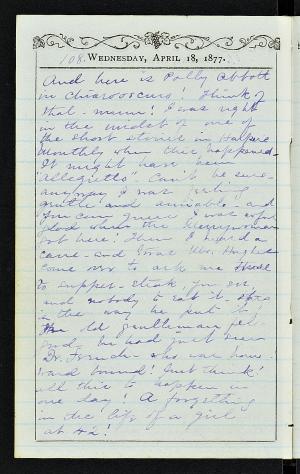 108.
WEDNESDAY, APRIL 18, 1877.
And here is Polly Abbott
in Chiaroscuro! Think of
that - mum! I was right
in the midst of one of
the short stories in Harpers
Monthly when this happened.
It might have been
"allegretto". Can't be sure.
anyway I was feeling
gentle and amiable - and
you can guess I was awful
glad when the
got here. Then I heard a
cane - and it was Mr.
come over to ask me
to supper - steak, you see,
and nobody to eat it -
is the way he put it,
the old gentleman
and he had just seen
Dr. French who was home-
ward bound! Just think!
all this to happen in
one day! A
in the life of a girl
at